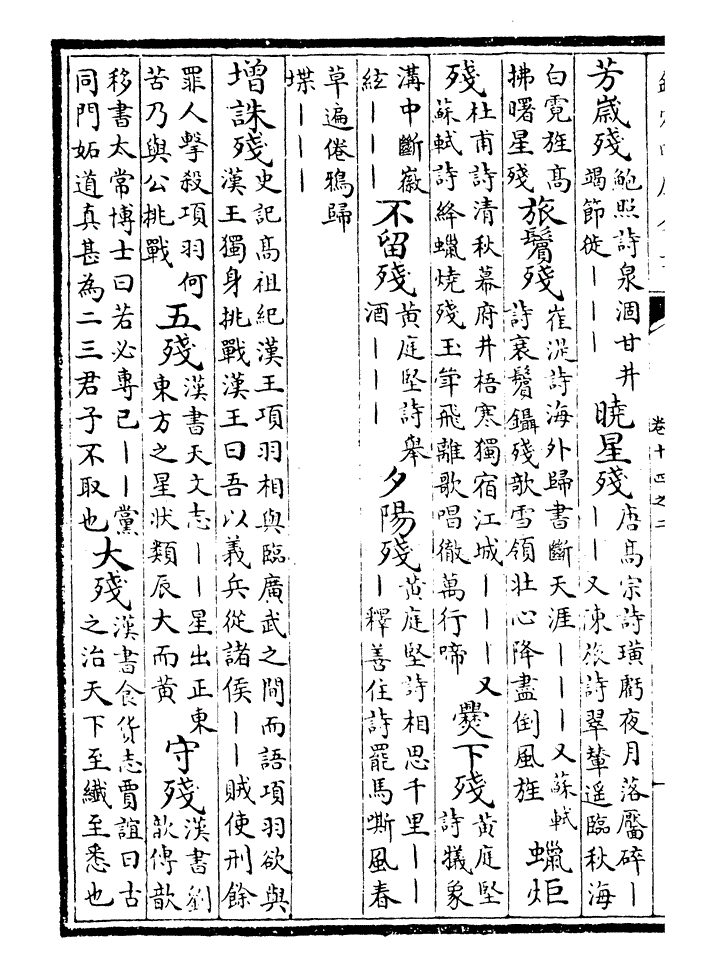 卷十四之二
芳歲殘
鮑照詩泉涸甘井
竭節徙｜｜｜
曉星殘
唐高宗詩璜虧夜月落靨碎｜
｜｜又陳旅詩翠輦遙臨秋海
白霓旌高
拂曙星殘
旅鬢殘
崔湜詩海外歸書斷天涯｜｜｜又蘇軾
詩衰鬢鑷殘欹雪領壯心降盡倒風旌
蠟炬
殘
杜甫詩清秋幕府井梧寒獨宿江城｜｜｜又
蘇軾詩絳蠟燒殘玉斝飛離歌唱徹萬行啼
爨下殘
黃庭堅
詩犧象
溝中斷徽
絃｜｜｜
不留殘
黃庭堅詩舉
酒｜｜｜
夕陽殘
黃庭堅詩相思千里｜｜
｜釋善住詩罷馬嘶風春
草遍倦鴉歸
堞｜｜｜
增誅殘
史記高祖紀漢王項羽相與臨廣武之間而語項羽欲與
漢王獨身挑戰漢王曰吾以義兵從諸侯｜｜賊使刑餘
罪人擊殺項羽何
苦乃與公挑戰
五殘
漢書天文志｜｜星出正東
東方之星狀類辰大而黃
守殘
漢書劉
歆傳歆
移書太常博士曰若必專已｜｜黨
同門妬道真甚為二三君子不取也
大殘
漢書食貨志賈誼曰古
之治天下至纖至悉也